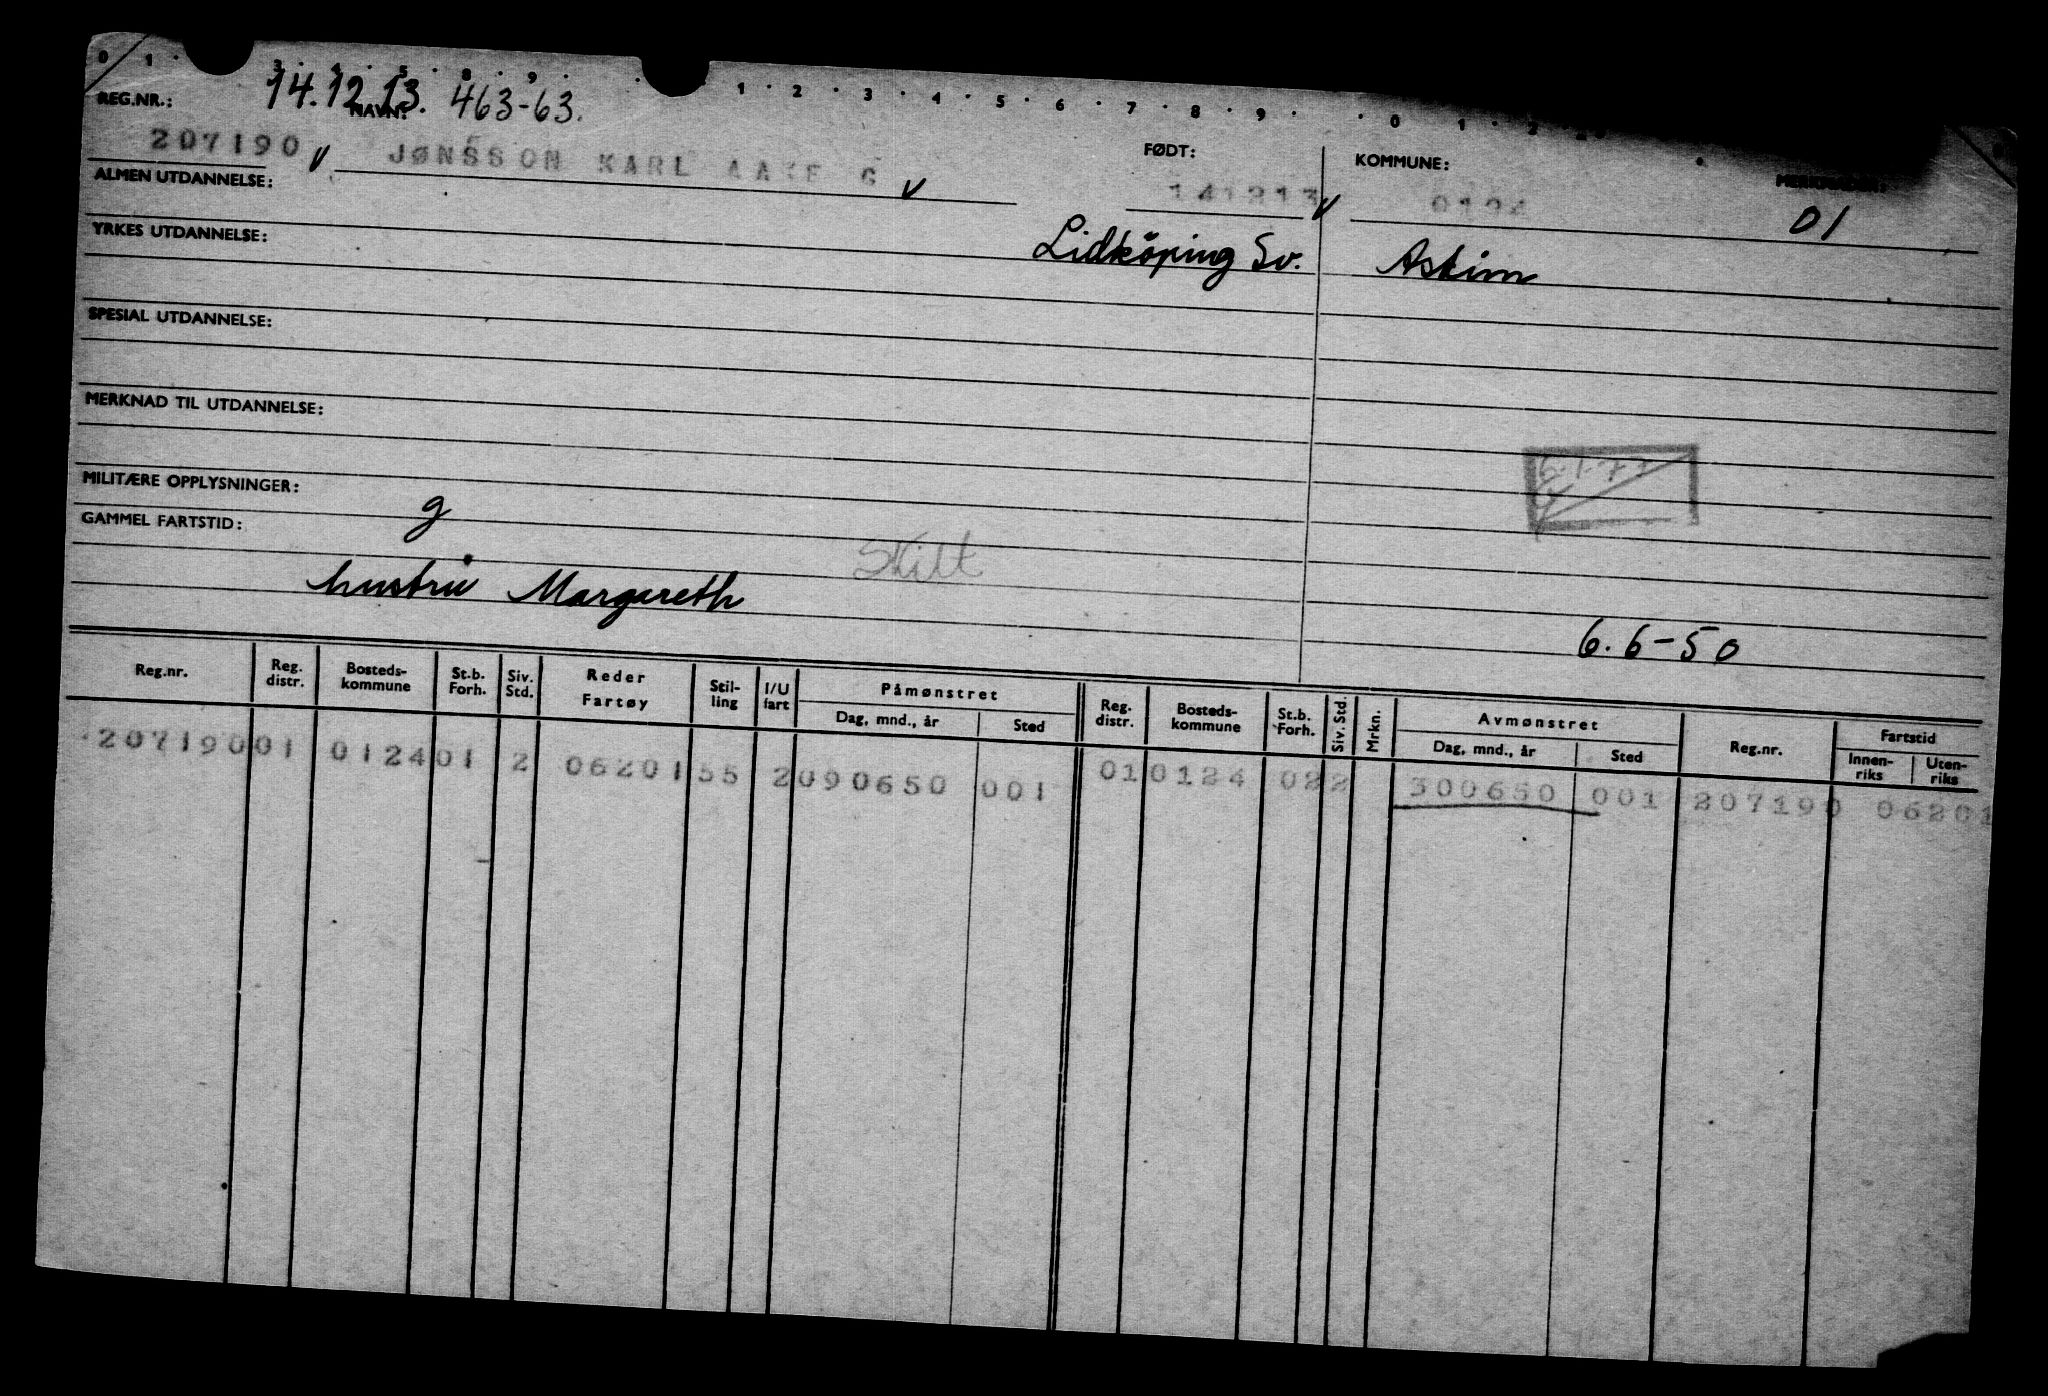 0 1 . 3 . 4 . 5 . 8 . 9 . . 1 . 2 . 3 . 4 . 5 . 6 . 7 . 8 . 9 . . 0 . 1 . 2
14.12.13. 463-63.
REG.NR.: NAVN: FØDT: KOMMUNE:
207190 v JØNSSON KARL AAKE G v 141213 v 0124 01
ALMEN UTDANNELSE:
YRKES UTDANNELSE: Lidköping Sv. Askim
SPESIAL UTDANNELSE:
MERKNAD TIL UTDANNELSE:
6.1.77
MILITÆRE OPPLYSNINGER: g
GAMMEL FARTSTID: Skilt
hustru Margareth
6.6-50
Reg.nr. Reg. distr. Bosteds-kommune St.b. Forh. Siv. Std. Reder Fartøy Stil-ling I/U fart Påmønstret Dag, mnd., år Sted Reg. distr. Bosteds-kommune St.b. Forh. Siv. Std. Mrkn. Avmønstret Dag, mnd., år Sted Reg.nr. Fartstid Innen-riks Uten-riks
207190 01 0124 01 2 06201 55 2 090650 001 01 0124 02 2 300650 001 207190 06201